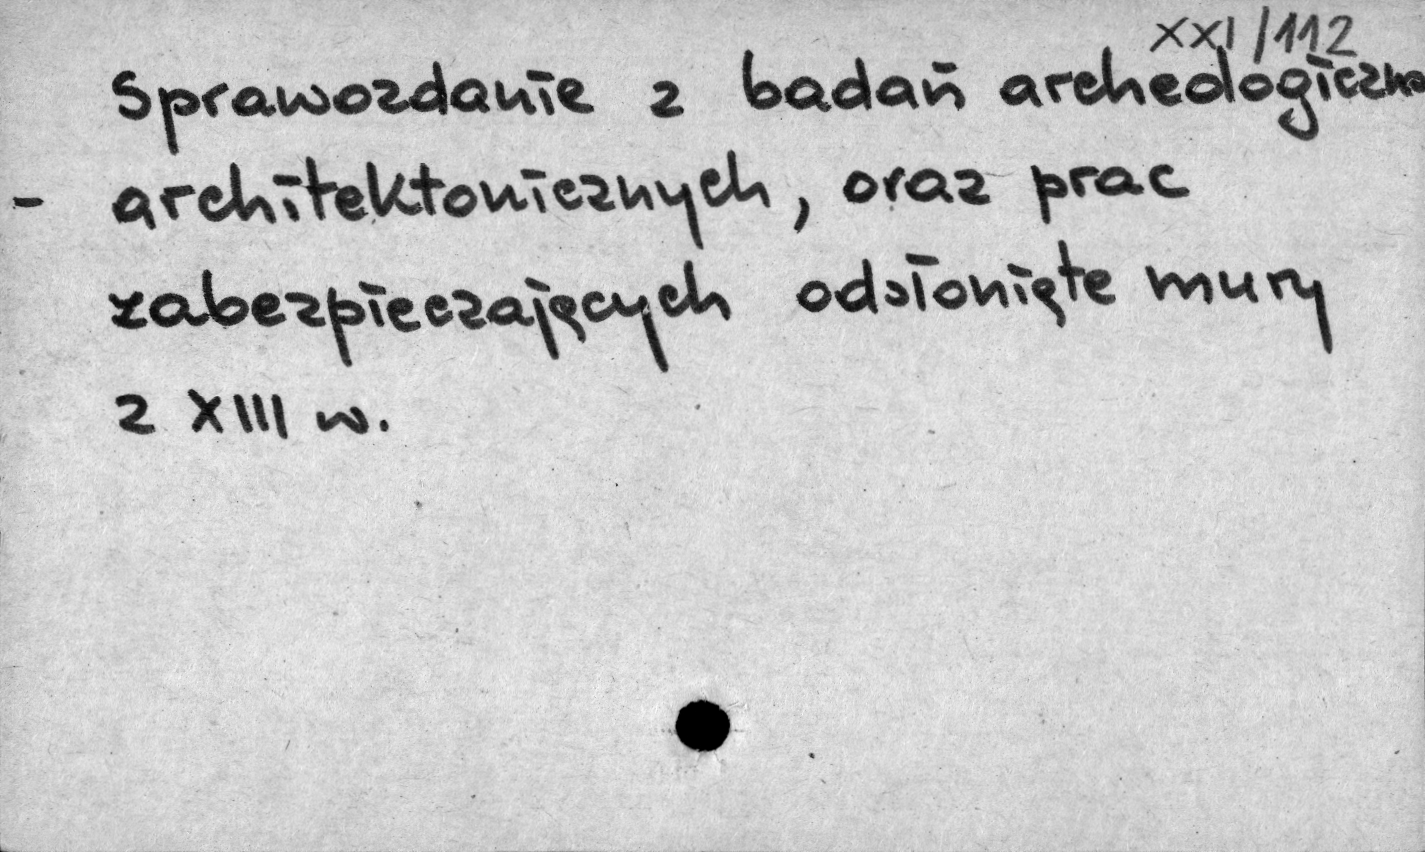 XXI/112
Sprawozdanie z badań archeologiczno
- architektonicznych, oraz prac
zabezpieczających odsłonięte mury
z XIII w.